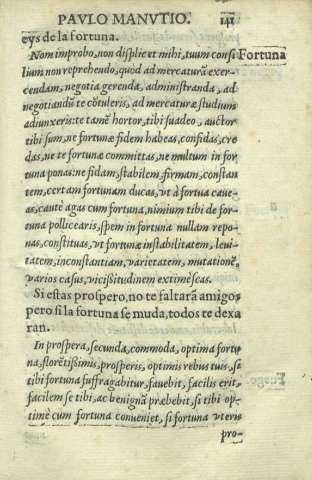 PAVLO MANVTIO. 141
eys de la fortuna.
Nom improbo, non displicet mihi, tuum consi Fortuna
lium non reprehendo, quod ad mercaturā exer-
cendam, negotia gerenda, administranda, ad
negotiandū te cōtuleris, ad mercaturæ studium
adiunxeris: te tamē hortor, tibi suadeo, auctor
tibi sum, ne fortunæ fidem habeas, confidas, cre
das, ne te fortunæ committas, ne multum in for
tuna ponas: ne fidam, stabilem, firmam, constan
tem, certam fortunam ducas, vt à fortua caue-
as, cautè agas cum fortuna, nimium tibi de for-
tuna pollicearis, spem in fortuna nullam repo-
nas, constituas, vt fortunæ instabilitatem, leui-
tatem, inconstantiam, varietatem, mutationē,
varios casus, vicißitudinem extimescas.
Si estas prospero, no te faltarā amigos
pero si la fortuna se muda, todos te dexa
ran.
In prospera, secunda, commoda, optima fortu
na, florētißimis, prosperis, optimis rebus tuis, si
tibi fortuna suffragabitur, fauebit, facilis erit,
facilem se tibi, ac benignā præbebit, si tibi op
timè cum fortuna conueniet, si fortuna vteris
pro-
Fuego